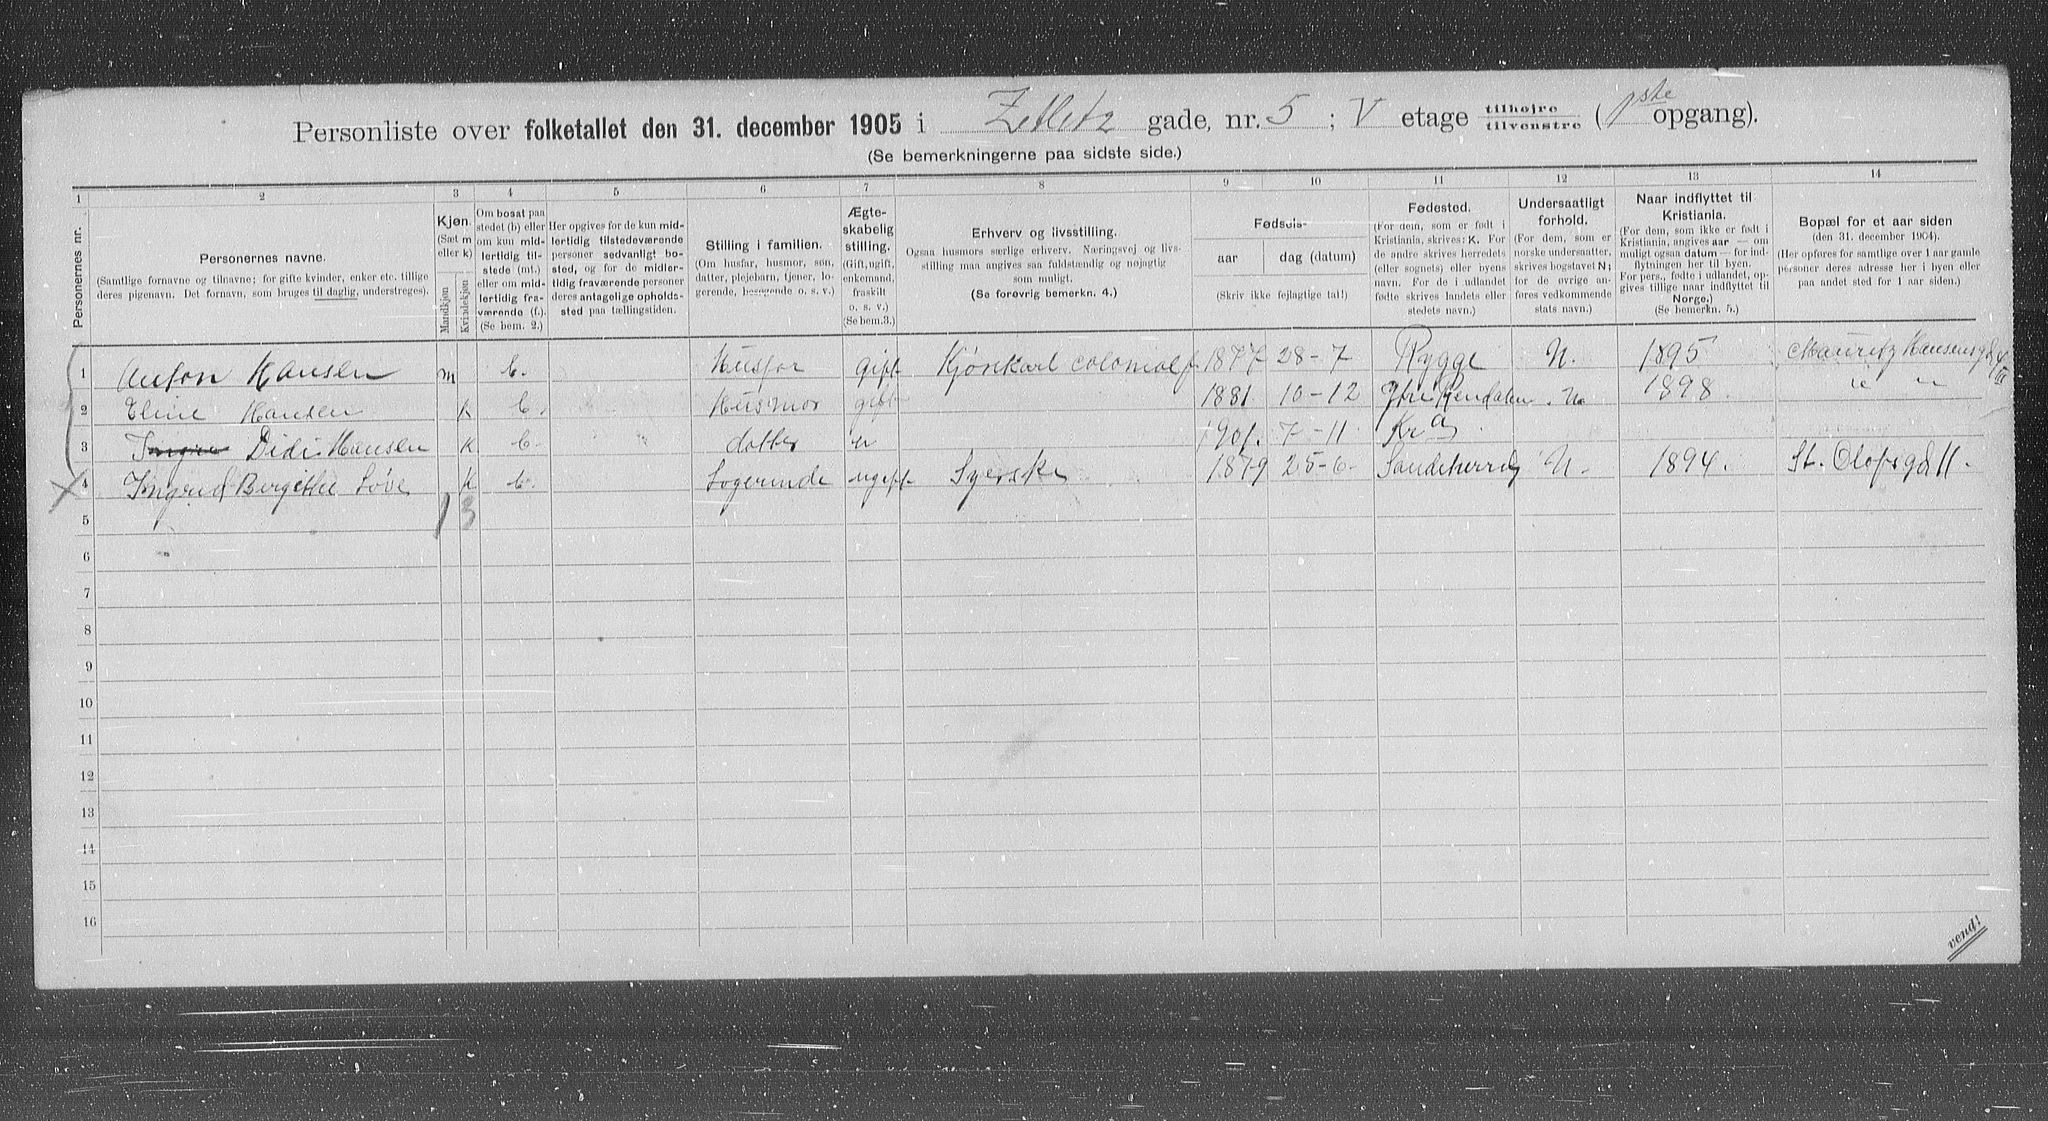 Personliste over folketallet den 31. december 1905 i Zetlitz gade, nr. 5 ; V etage tilhøjre tilvenstre ( 1ste opgang).
(Se bemerkningerne paa sidste side.)
1 2 3 4 5 6 7 8 9 10 11 12 13 14
Personernes nr.
Personernes navne.
(Samtlige fornavne og tilnavne; for gifte kvinder, enker etc. tillige
deres pigenavn. Det fornavn, som bruges til daglig, understreges).
Kjøn.
(Sæt m
eller k)
Mandkjøn
Kvindekjøn
Om bosat paa
stedet (b) eller
om kun mid-
lertidig til-
stede (mt.)
eller om mid-
lertidig fra-
værende (f.).
(Se bem. 2.)
Her opgives for de kun mid-
lertidig tilstedeværende
personer sedvanligt bo-
sted, og for de midler-
tidig fraværende personer
deres antagelige opholds-
sted paa tællingstiden.
Stilling i familien.
(Om husfar, husmor, søn,
datter, plejebarn, tjener, lo-
gerende, besøgende o. s. v.)
Ægte-
skabelig
stilling.
(Gift, ugift,
enkemand,
fraskilt
o. s. v.)
(Se bem.3.)
Erhverv og livsstilling.
Ogsaa husmors særlige erhverv. Næringsvej og livs-
stilling maa angives saa fuldstændig og nøjagtig
som muligt.
(Se forøvrig bemerkn. 4.)
Fødsels-
aar
dag (datum)
(Skriv ikke fejlagtige tal!)
Fødested.
(For dem, som er født i
Kristiania, skrives: K. For
de andre skrives herredets
(eller sognets) eller byens
navn. For de i udlandet
fødte skrives landets eller
stedets navn.)
Undersaatligt
forhold.
(For dem, som er
norske undersaatter,
skrives bogstavet N;
for de øvrige an-
føres vedkommende
stats navn.)
Naar indflyttet til
Kristiania.
(For dem, som ikke er født i
Kristiania, angives aar — om
muligt ogsaa datum — for ind-
flytningen her til byen.
For pers., fødte i udlandet, op-
gives tillige naar indflyttet til
Norge.)
(Se bemerkn. 5.)
Bopæl for et aar siden
(den 31. december 1904).
(Her opføres for samtlige over 1 aar gamle
personer deres adresse her i byen eller
paa andet sted for 1 aar siden.)
1 Anton Hansen m b. Husfar gift 1877 28-7 Rygge N. 1895 Mauritz Hansensgd
2 Eline Hansen k b. Husmor gift 1881 10-12 N. 1898 " "
3 Didi Hansen k b. datter 1901. 7-11 Kra
4 Ingrid Løve k b. Logerende ugift Syerske 1879 25-6 Sandeherred N. 1894. St. Olafsgd 11.
1 3
5
6
7
8
9
10
11
12
13
14
15
16
vend!